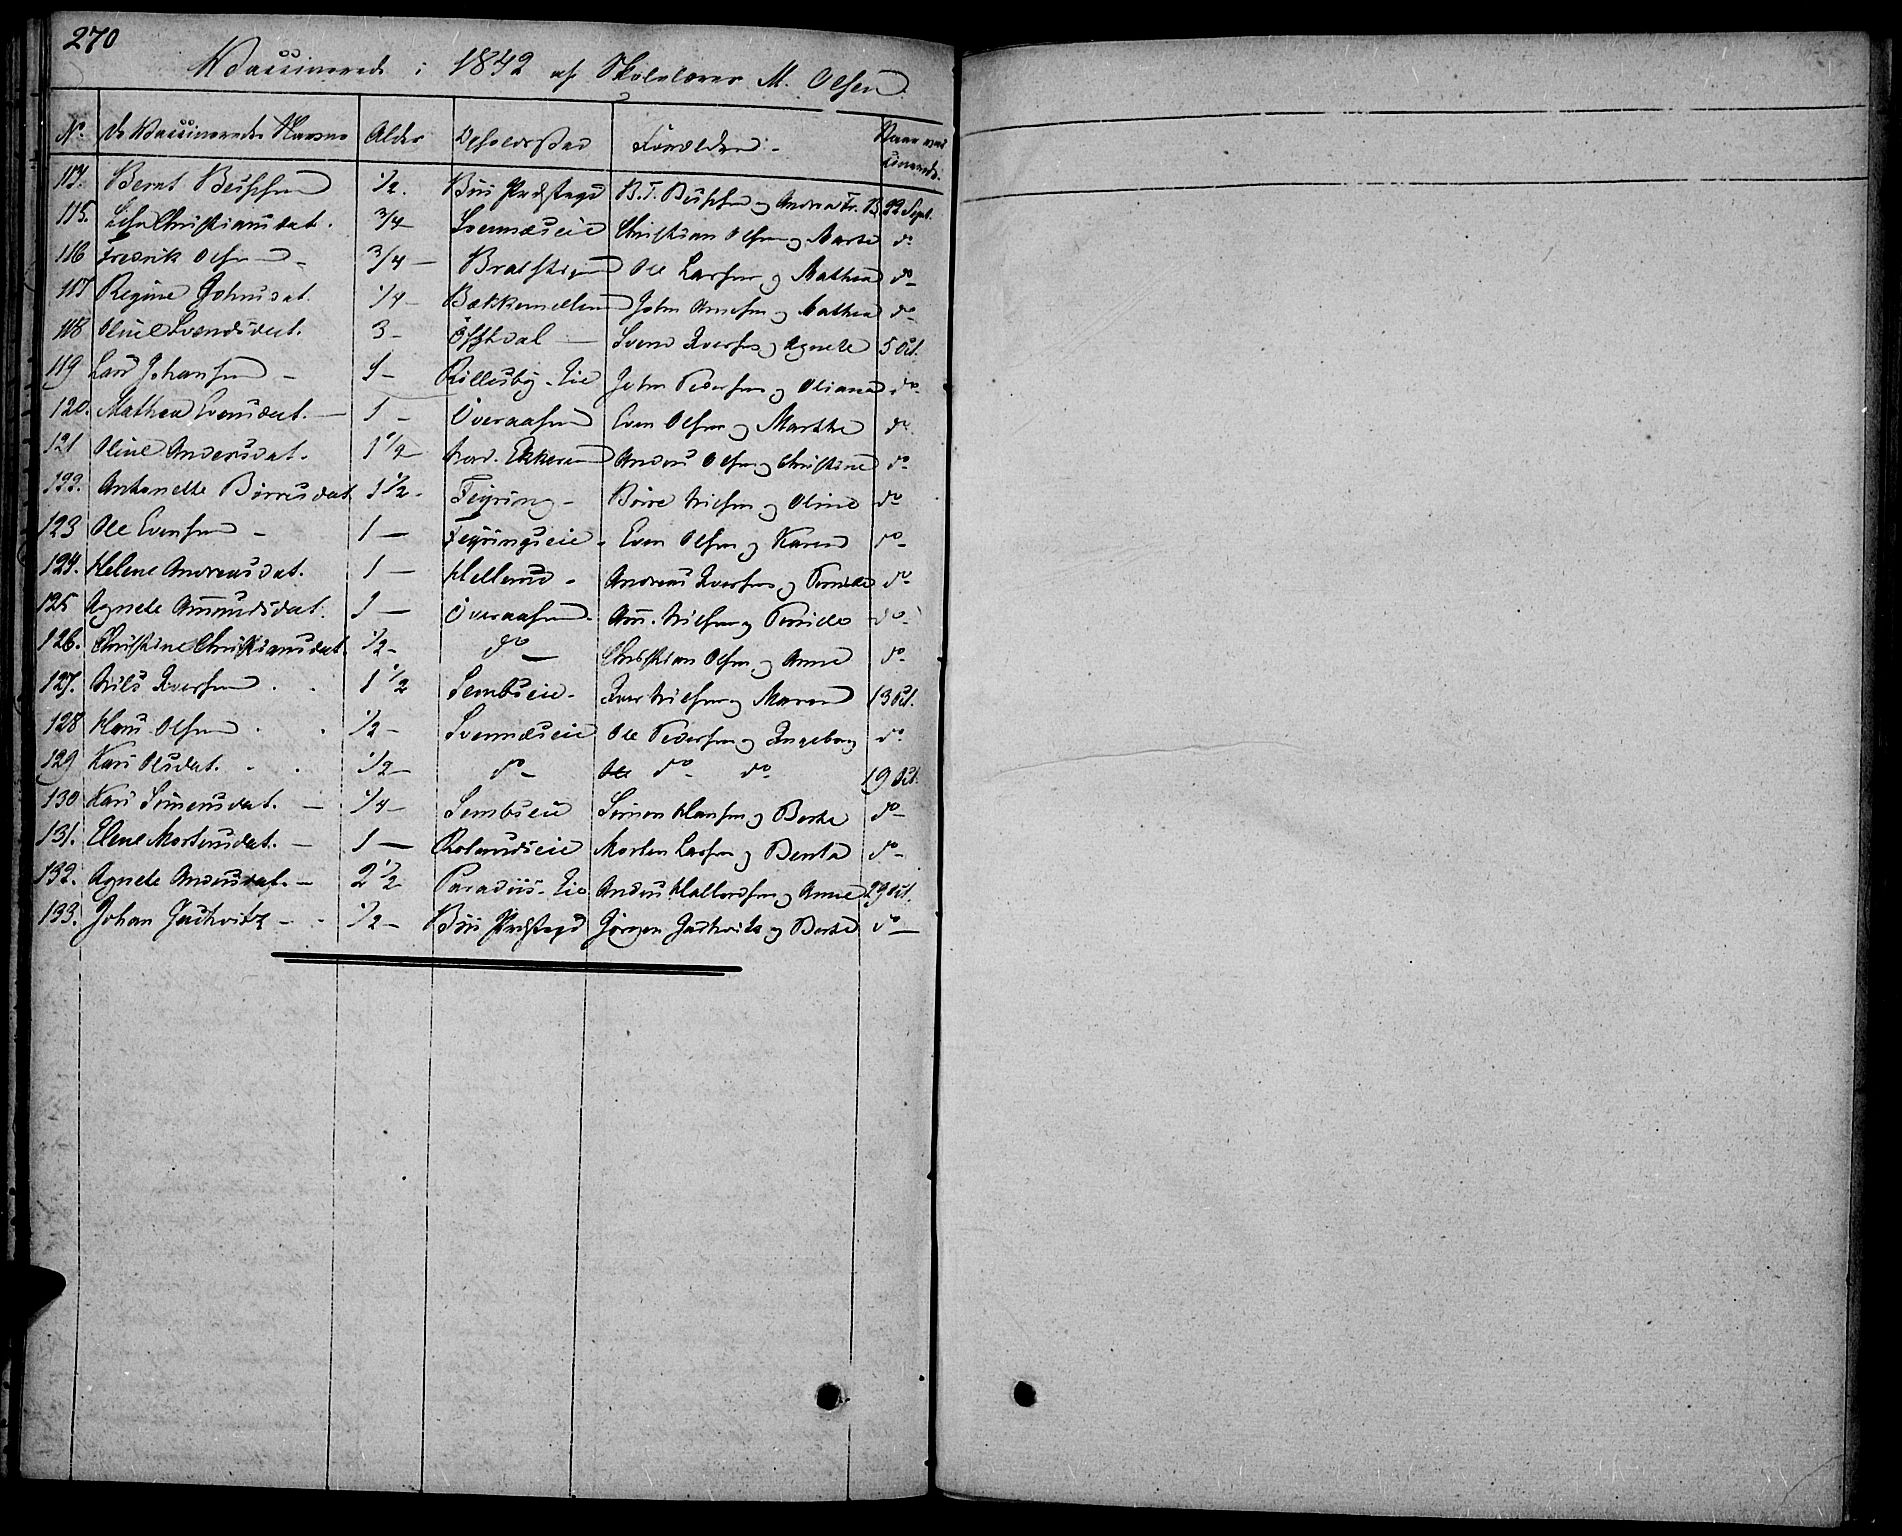 270
Vaccinerede i 1842 af Skolelærer M. Olsen.
N. De Vaccineredes Navne Alder Opholdssted Forældrene Naar vaccinerede.
114. Bernt 1/2. Præstegd B. T. og Andrea Fr. B. 22 Sept.
115. Christiansdat. 3/4 Svennæseie Christian Olsen og Marte do
116 Fredrik Olsen 3/4 Ole Larsen og Mathea do
117 Regine Johnsdat. 1/4 Bækkemellem John og Mathea do
118 Oline Svendsdat. 3 Svend Iversen og Agnete 5 Oct.
119 Lars Johansen 1 Rillusby-Eie John Pedersen og Oliana do
120. Mathea Evensdat. 1 Overaasen Even Olsen og Marthe do
121 Oline Andersdat. 1 1/2 Nord. Ekkeren Anders Olsen og Christine do
122. Antonette Börresdat 1 1/2 Feiring Börre Nielsen og Oline do
123 Ole Evensen 1 Feiringseie Even Olsen og Karen do
124. Helene Andreasdat. 1 Hellerud Andreas Iversen og Pernille do
125 Agnete Amundsdat. 1 Overaasen Am. Nielsen og do
126. Christine Christiansdat. 1/2 do Christian Olsen og Anne do
127. Nils Iversen 1 1/2 Sembseie Iver Nielsen og Maren 13 Oct.
128 Hans Olsen 1/2 Svennæseie Ole Pedersen og Ingeborg do
129 Kari Olsdat. 1/2 do Ole do do 19 Oct.
130 Kari Simensdat. 1/4 Sembseie Simen Hansen og Berte do
131. Elene Mortensdat. 1 Rolundseie Morten Larsen og Benta do
132. Agnete Andersdat. 2 1/2 Paradiis-Eie Anders Hallordsen og Anne 29 Oct.
133. Johan Jackwitz 1/2 Præstegd Jörgen Jackwitz og Berthe do